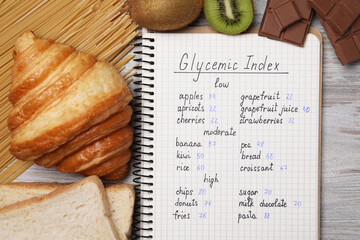 Glycemic Index
low
apples 44 grapefruit 22
apricots 22 grapefruit juice 48
cherries 22 strawberries 32
moderate
banana 47 pea 48
kiwi 50 bread 68
rice 60 croissant 67
high
chips 80 sugar 70
donuts 76 milk chocolate 70
fries 76 pasta 88